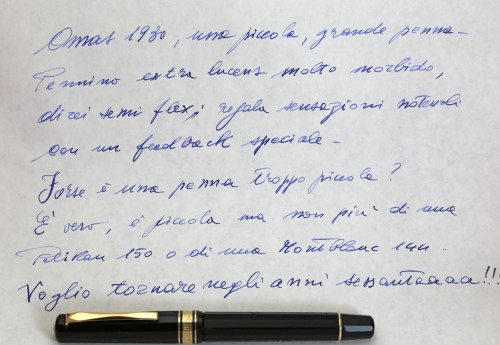 Omas 1930, una piccola, grande penna-
Pennino extra lucens molto morbido,
direi semi flex; regala sensazioni notevoli
con un feedback speciale-
Forse è una penna troppo piccola?
E' vero, è piccola ma non più di una
Pelikan 150 o di una Montblanc 144.
Voglio tornare negli anni sessantaaaa!!!